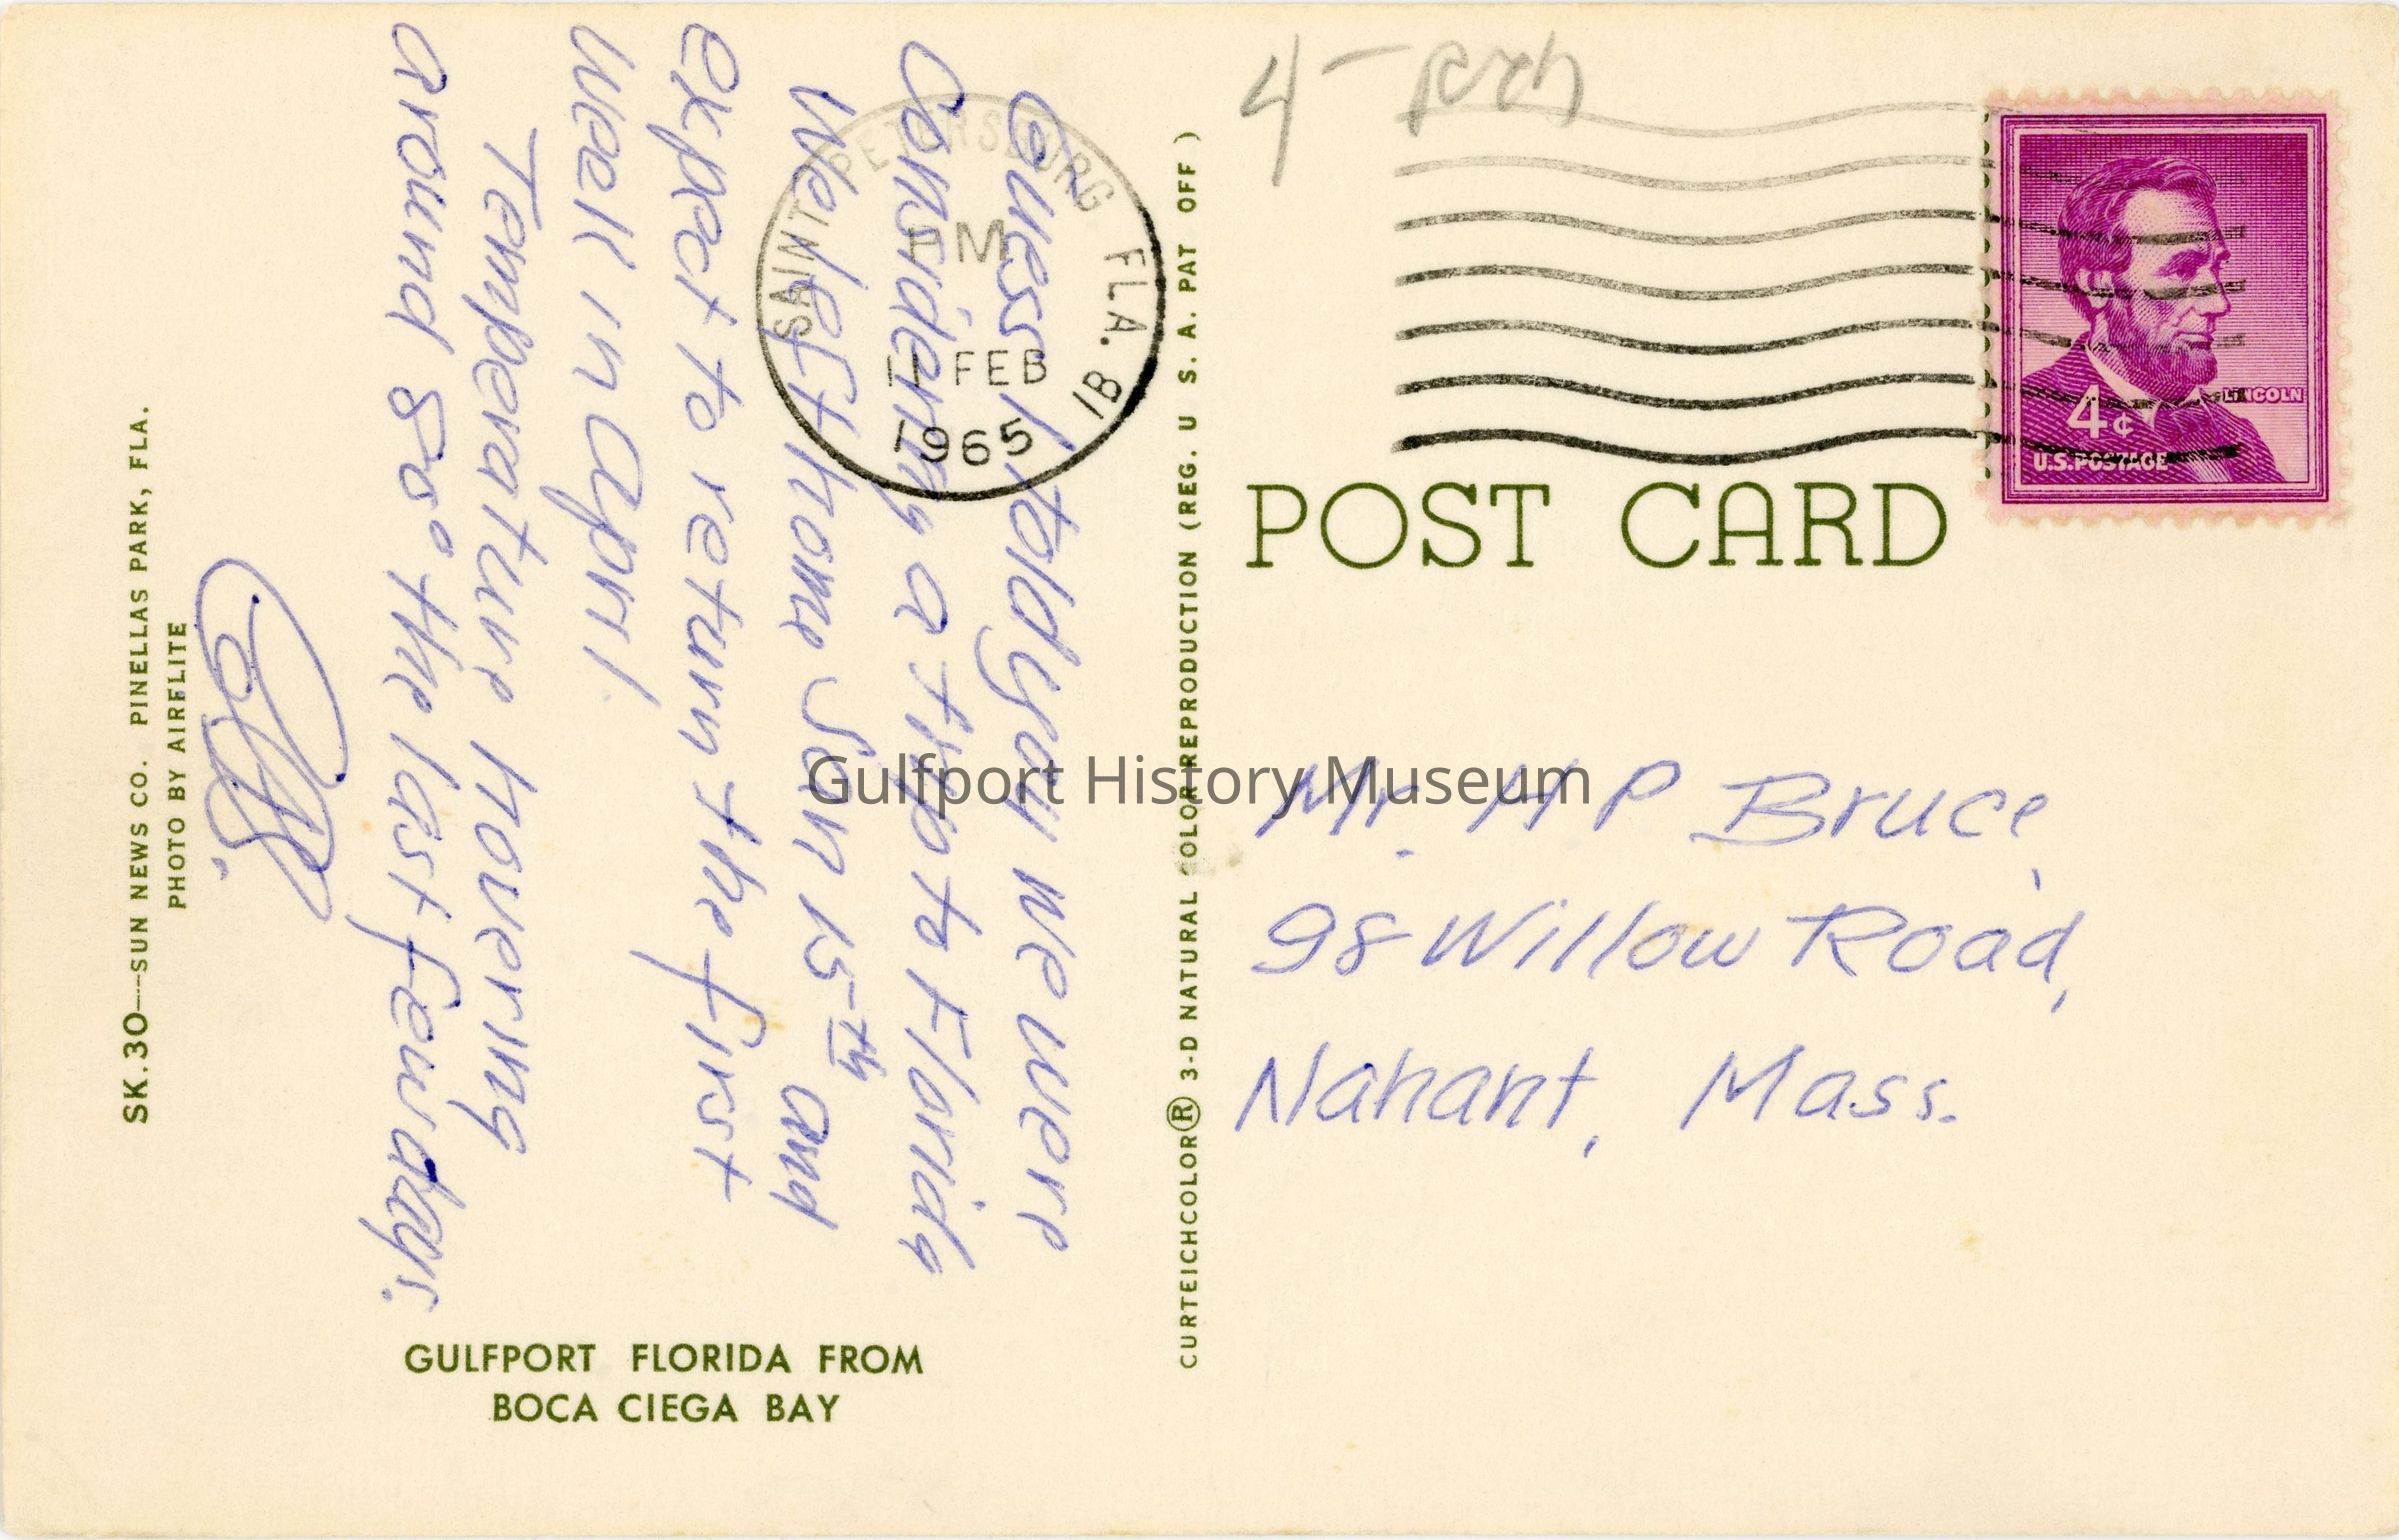 Guess I told you we were
Considering a trip to Florida
We left home Jan 15th and
expect to return the first
week in April.
Temperature hovering
around 80° the last few days.
SK.30—SUN NEWS CO. PINELLAS PARK, FLA.
PHOTO BY AIRFLITE
GULFPORT FLORIDA FROM
BOCA CIEGA BAY
SAINT PETERSBURG FLA. 1B
PM
11 FEB
1965
CURTEICHCOLOR® 3-D NATURAL COLOR REPRODUCTION (REG. U S. A. PAT OFF )
4-
LINCOLN
4¢
U.S. POSTAGE
POST CARD
Mr. H P Bruce,
98 Willow Road,
Nahant, Mass.
Gulfport History Museum